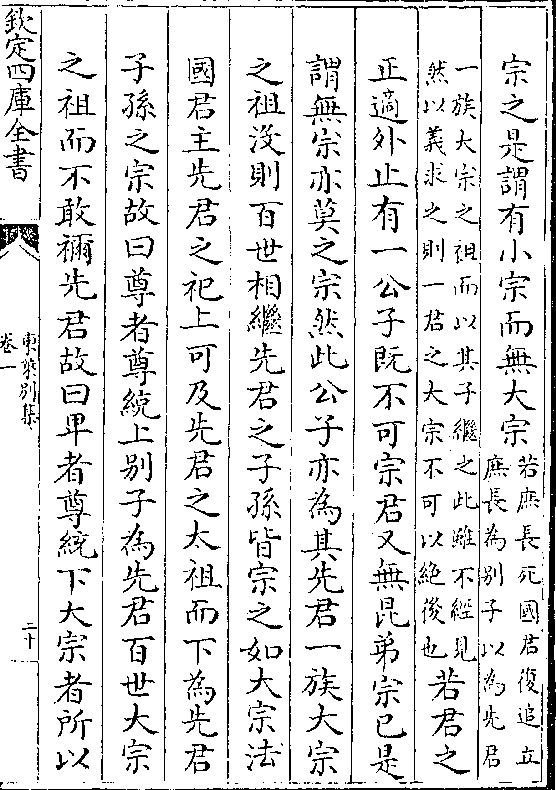 宗之是謂有小宗而無大宗若庶長死國君復追立
庶長為別子以為先君
一族大宗之祖而以其子繼之此雖不經見
然以義求之則一君之大宗不可以絶後也若君之
正適外止有一公子既不可宗君又無昆弟宗已是
謂無宗亦莫之宗然此公子亦為其先君一族大宗
之祖没則百世相繼先君之子孫皆宗之如大宗法
國君主先君之祀上可及先君之太祖而下為先君
子孫之宗故曰尊者尊統上别子為先君百世大宗
之祖而不敢禰先君故曰卑者尊統下大宗者所以
欽定四庫全書
東萊别集
卷一
二十